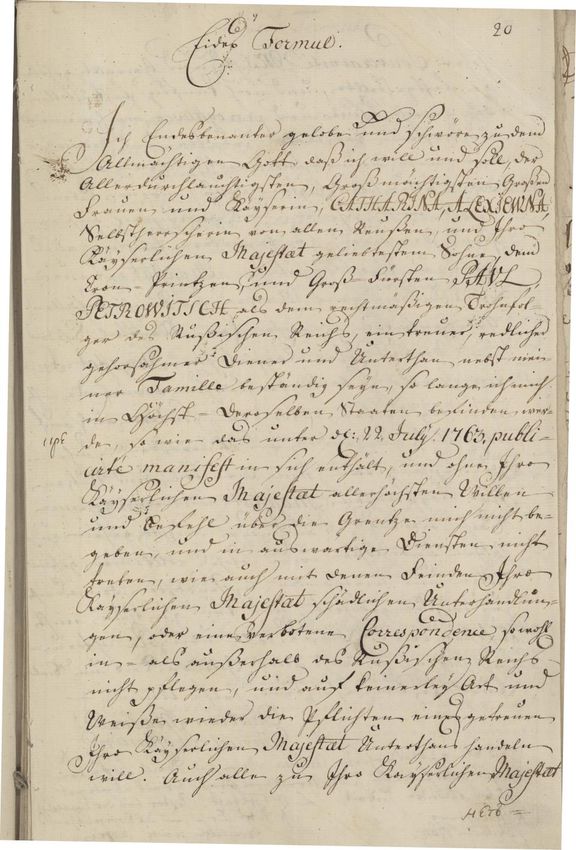 20
Eides Formul.
Ich Endesbenanter gelobe und schwöre zu dem
Allmächtigen Gott daß ich will und soll, der
Allerdurchlauchtigsten, Großmächtigsten Großen
Frauen und Kayserin, CATHARINA, ALEXIEWNA,
Selbstherrscherin von allen Reußen, und Ihro
Kayserlichen Majestät geliebtestem Sohne, dem
Cron-Printzen, und Groß-Fürsten PAUL,
PETROWITSCH als dem rechtmäßigen Trohnfol-
ger des Rußischen Reichs, ein treuer, redlicher
gehorsahmer Diener und Unterthan nebst mei-
ner Familie beständig seyn, so lange ich mich
in Höchst-Deroselben Staaten befinden wer-
de, so wie das unter d: 22 July, 1763, publi-
cirte manifest in sich enthält, und ohne Ihro
Kayserlichen Majestät allerhöchsten Willen
und Befehl über die Grentze mich nicht be-
geben, und in auswartige Diensten nicht
treten, wie auch mit denen Feinden Ihro
Kayserlichen Majestät schädlichen Unterhandlun-
gen, oder eine verbotene Correspondence sowohl
in- als außerhalb des Rußischen Reichs
nicht pflegen, und auf keinerley Art und
Weiße wieder die Pflichten eines getreuen
Ihro Kayserlichen Majestät Unterthans handeln
will. Auch alle zu Ihro Kayserlichen Majestät